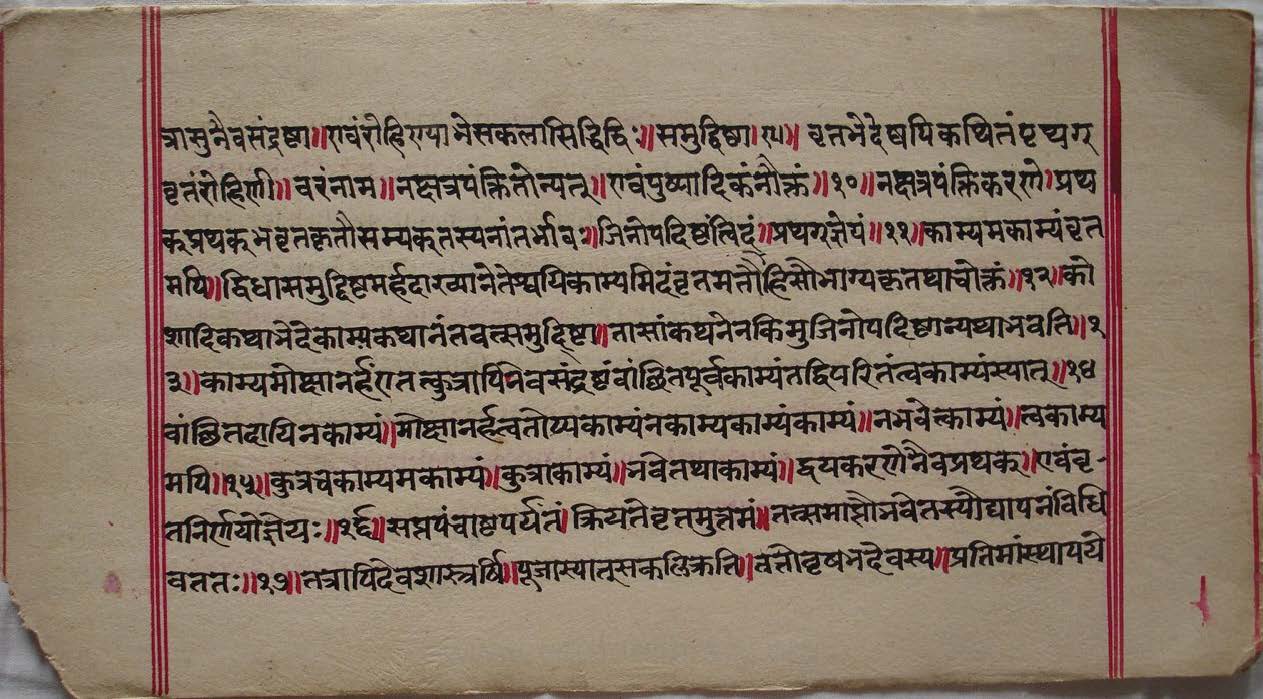 त्रासुनैवसंद्रष्टा॥एवंरोहिण्याभेसकलासिद्धिदिः॥समुद्दिष्ठा।१५॥वृतभेदेष्वपिकथितंपृथग्
वृतंरोहिणी॥वरंनाम॥नक्षत्रपंक्तितोन्यत्॥एवंपुष्पादिकंनोक्तं॥१०॥नक्षत्रपंक्तिकरणे।प्रथ
क्प्रथक्भवृतकृतौसम्यक्तस्यनांतर्भाव॥जिनोपदिष्टंत्विदं॥प्रथग्ज्ञेयं॥११॥काम्यमकाम्यंवृत
मपि॥द्विधासमुद्दिष्टमर्हदाख्यानेतेष्वपिकाम्यमिदंवृतमतोहिसौभाग्यकृतथाचोक्तं॥१२॥को
शादिकथाभेदेकाम्यकथानंतवत्समुदिष्टा॥तासांकथनेनकिमुजिनोपदिष्टान्यथाभवति॥१
३॥काम्यमोक्षानर्हंएतत्कुत्रापिनैवसंद्रष्टंवांछितपूर्वकाम्यंतद्विपरितंत्वकाम्यंस्यात्॥१४
वांछितदायिनकाम्यं॥मोक्षानर्हत्वतोप्यकाम्यंनकाम्यकाम्यंकाम्यं॥नभवेत्काम्यं॥त्वकाम्य
मपि॥१५॥कुत्रचकाम्यमकाम्यं॥कुत्राकाम्यं॥नवेतथाकाम्यं॥द्वयकरणेनैवप्रथक्॥एवंवृ-
तनिर्णयोज्ञेयः॥१६॥सप्तपंचाष्टपर्यंतं।क्रियतेवृतमुत्तमं॥तत्समाप्तौभवेतस्यौद्यापनंविधि
वततः॥१७॥तत्रापिदेवशास्त्रर्षि॥पूजास्यात्सकलिकृति॥ततोवृषभदेवस्य॥प्रतिमांस्थापये